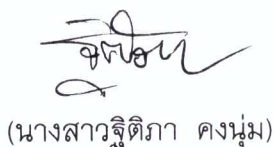 (นางสาวฐิติภา คงนุ่ม)